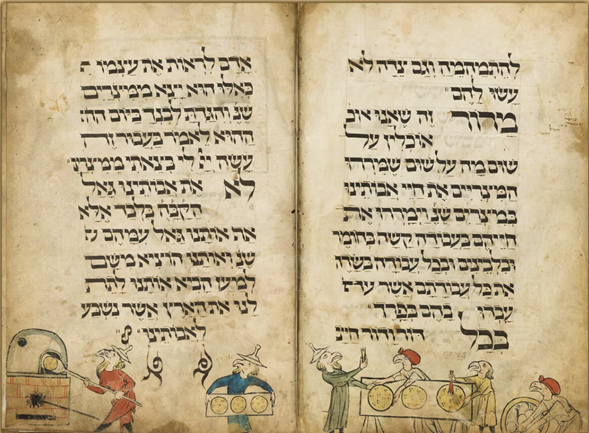 להתמהמה וגם צדה לא
עשו להם
מרור זה שאנו אוכ
אוכלין על
שום מה על שום שמררו
המצריים את חיי אבותינו
במצרים שנ וימררו את
חייהם בעבודה קשה בחומר
ובלבינים ובכל עבודה בשדה
את כל עבודתם אשר
עבדו בהם בפרך
בכל דור ודור חייב
אדם לראות את עצמו
כאלו הוא יצא ממצרים
שנ והגדת לבנך ביום
ההוא לאמר בעבור זה
עשה לי בצאתי ממצרים
לא את אבותינו גאל
הקבה בלבד אלא
את אותנו גאל עמהם
שנ ואותנו הוציא משם
למען הביא אותנו לתת
לנו את הארץ אשר נשבע
לאבותינו